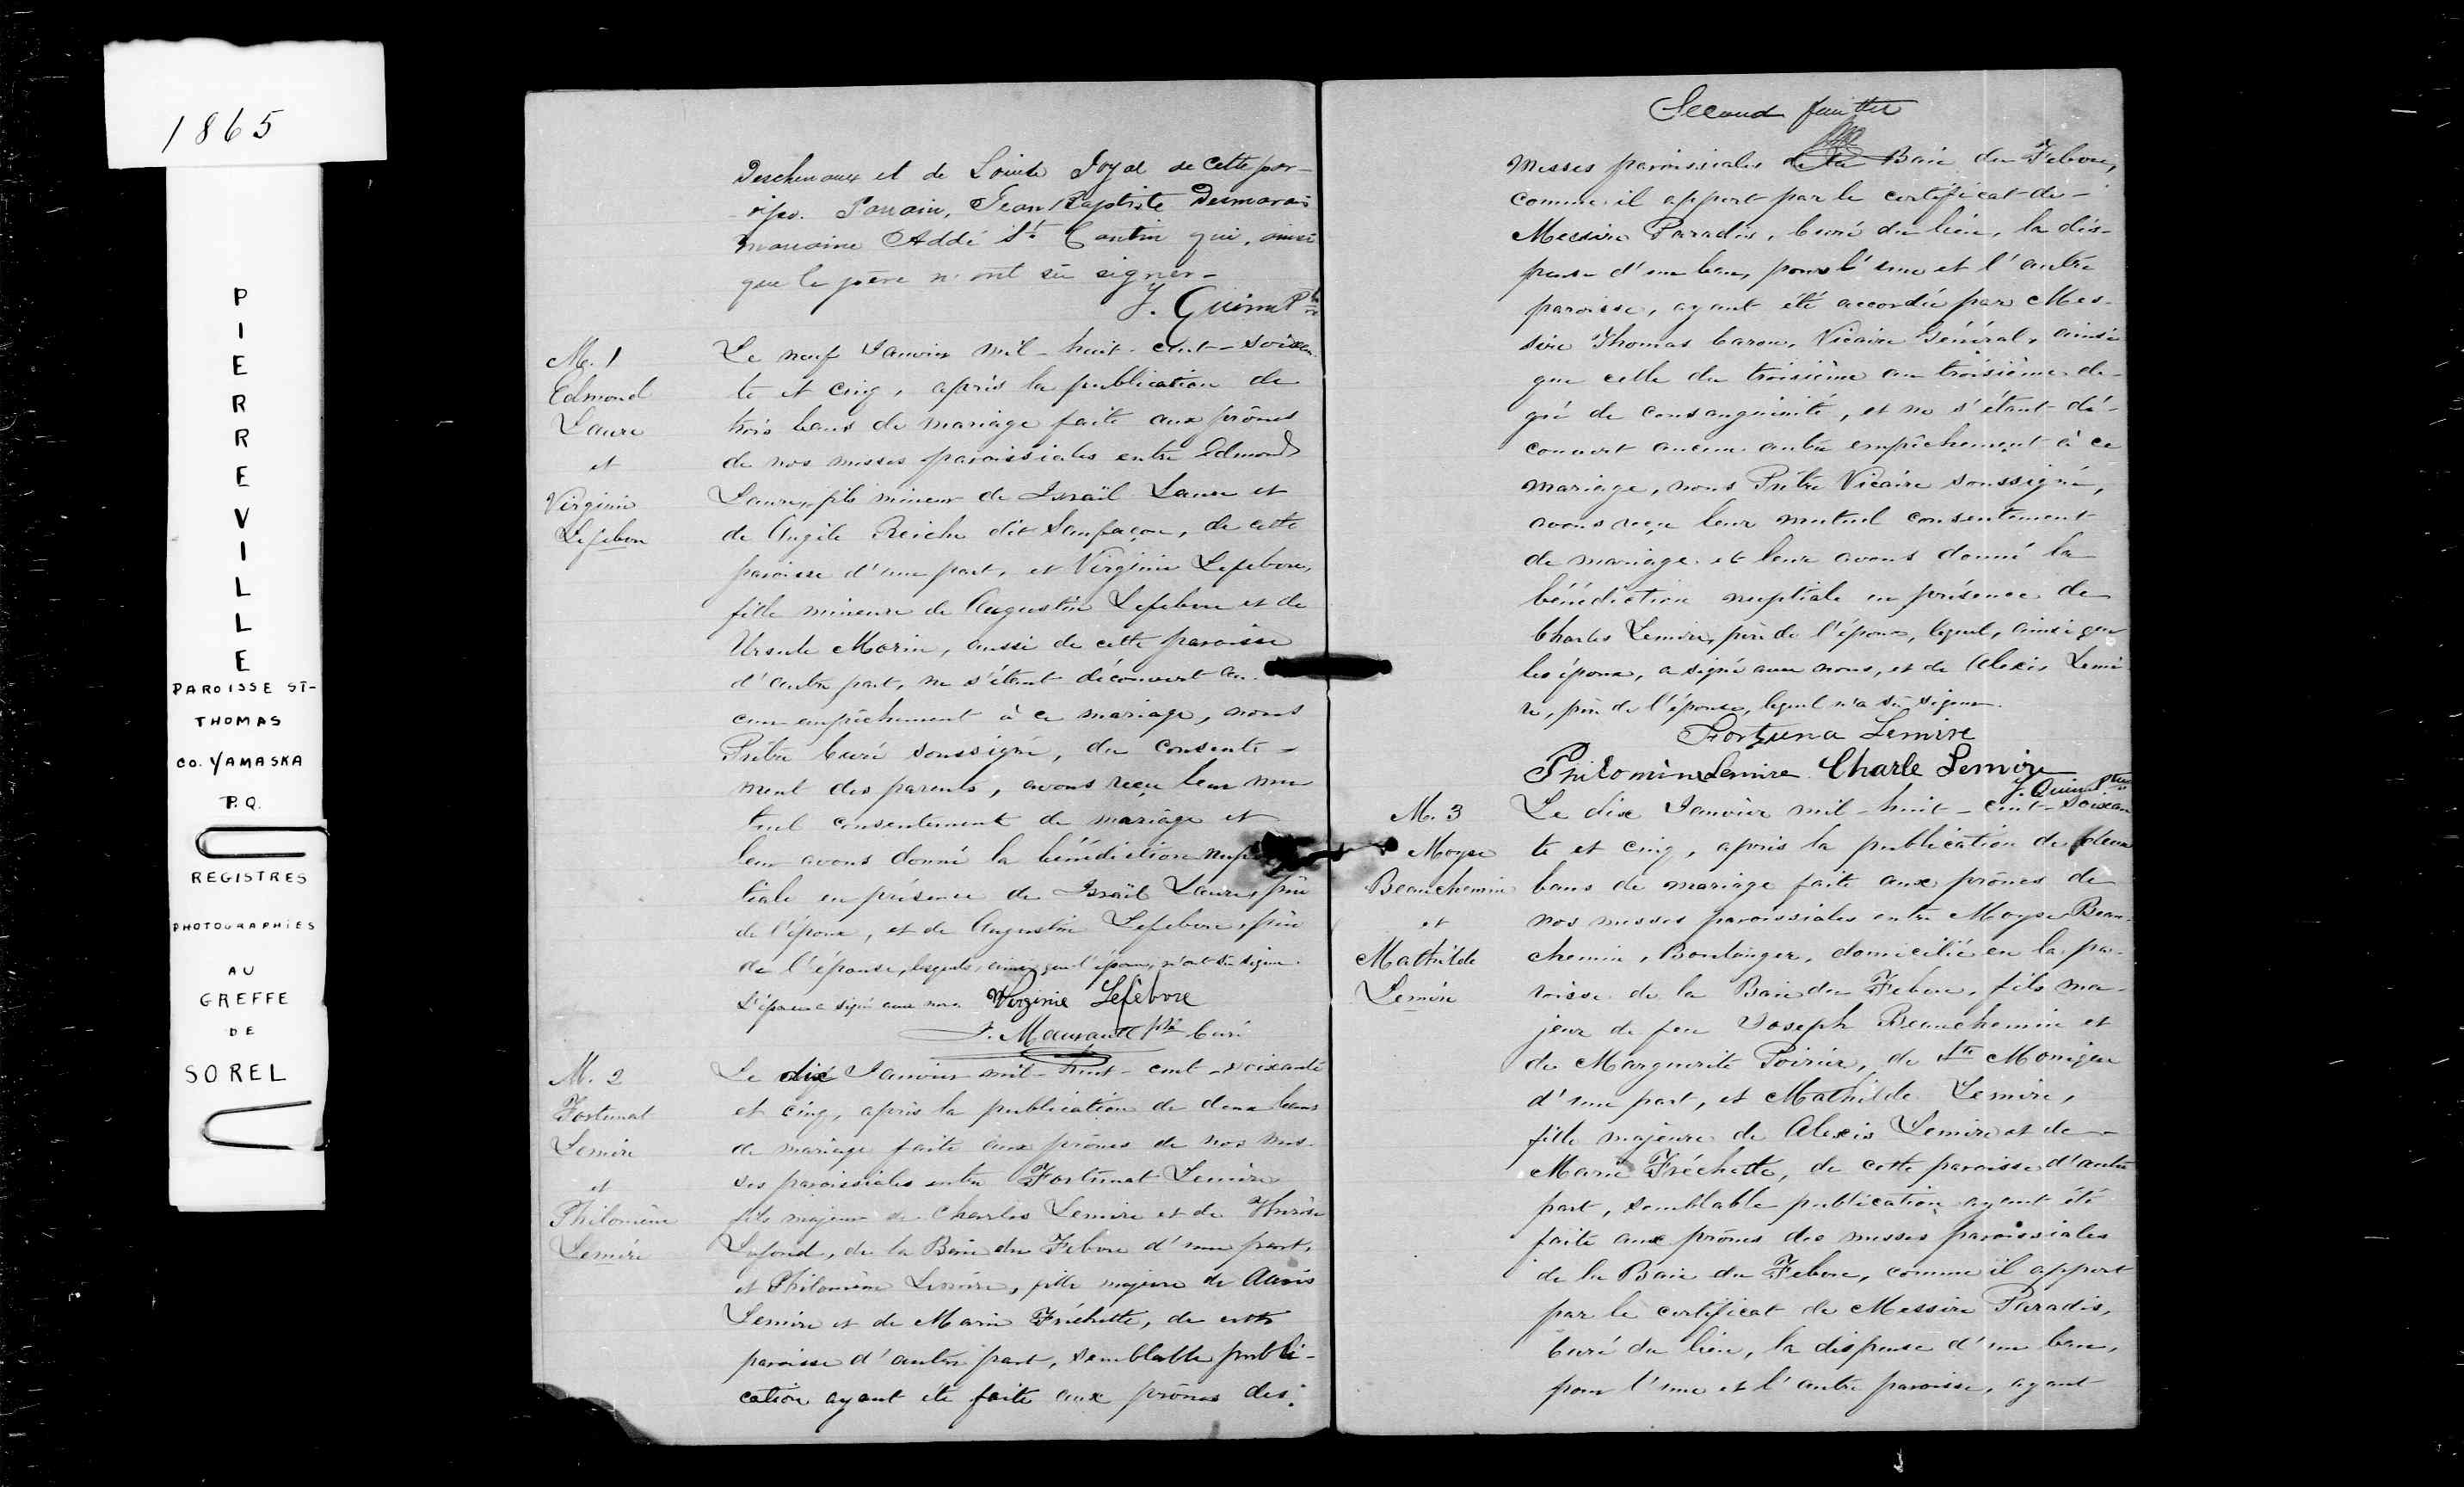 1865
PIERREVILLE
PAROISSE ST-
THOMAS
CO. YAMASKA
P.Q.
REGISTRES
PHOTOGRAPHIES
AU
GREFFE
DE
SOREL
Deschenaux et de Louise Joyal de cette par-
Parrain, Jean Baptiste Desmarais
marraine Addé qui, ainsi
que le père n'ont su signer-
J. Guimt Ptre
M. 1
Edmond
Laure
et
Virginie
Lefebvre
Le neuf Janvier mil-huit-cent-soixan
te et cinq, après la publication de
trois bans de mariage faite aux prônes
de nos messes paroissiales entre Edmond
Laure, fils mineur de Israël Laure et
de Angèle Reiche dit Sanfaçon, de cette
paroisse d'une part, et Virginie Lefebvre,
fille mineure de Augustin Lefebvre et de
Ursule Morin, aussi de cette paroisse
d'autre part, ne s'étant découvert au-
cun empêchement à ce mariage, nous
Prêtre Curé soussigné, du consente-
ment des parents, avons reçu leur mu
tuel consentement de mariage et
leur avons donné la bénédiction nup
tiale en présence de Israël Laure, père
de l'époux, et de Augustin Lefebvre, père
de l'épouse, lesquels, ainsi que l'époux, n'ont su signer.
L'épouse a signé avec nous. Virginie Lefebvre
J. Maurault ptre Curé
M. 2
Fortunat
Lemire
et
Philomène
Lemire
Le dix Janvier mil-huit-cent-soixante
et cinq, après la publication de deux bans
de mariage faite aux prônes de nos mes-
ses paroissiales entre Fortunat Lemire
fils majeur de Charles Lemire et de Thérèse
Lafond, de la Baie du Febvre d'une part,
et Philomène Lemire, fille majeure de Alexis
Lemire et de Marie Fréchette, de cette
paroisse d'autre part, semblable publi-
cation ayant été faite aux prônes des
Second feuillet
messes paroissiales de la Baie du Febvre,
comme il appert par le certificat de
Messire Paradis, Curé du lieu, la dis-
pense d'un ban, pour l'une et l'autre
paroisse, ayant été accordée par Mes-
sire Thomas Caron, Vicaire Général, ainsi
que celle du troisième au troisième de-
gré de consanguinité, et ne s'étant dé-
couvert aucun autre empêchement à ce
mariage, nous Prêtre Vicaire soussigné,
avons reçu leur mutuel consentement
de mariage et leur avons donné la
bénédiction nuptiale en présence de
Charles Lemire, père de l'époux, lequel, ainsi que
les époux, a signé avec nous, et de Alexis Lemi-
re, père de l'épouse, lequel n'a su signer.
Fortuna Lemire
Philomène Lemire Charle Lemire
J. Guimt Ptre
M. 3
Moyse
Beauchemin
et
Mathilde
Lemire
Le dix Janvier mil-huit-cent-soixan
te et cinq, après la publication de deux
bans de mariage faite aux prônes de
nos messes paroissiales entre Moyse Beau-
chemin, Boulanger, domicilié en la pa-
roisse de la Baie du Febvre, fils ma-
jeur de feu Joseph Beauchemin et
de Marguerite Poirier, de Ste Monique
d'une part, et Mathilde Lemire,
fille majeure de Alexis Lemire et de
Marie Fréchette, de cette paroisse d'autre
part, semblable publication ayant été
faite aux prônes des messes paroissiales
de la Baie du Febvre, comme il appert
par le certificat de Messire Paradis,
Curé du lieu, la dispense d'un ban,
pour l'une et l'autre paroisse, ayant